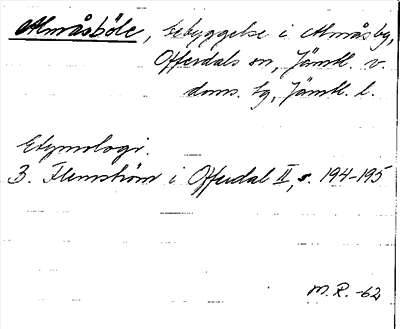 Almåsböle, bebyggelse i Almåsby,
Offerdals sn, Jämtl. v.
doms. tg, Jämtl. l.
Etymologi.
B. Flemström i Offerdal II, s. 194-195
M.R. -62